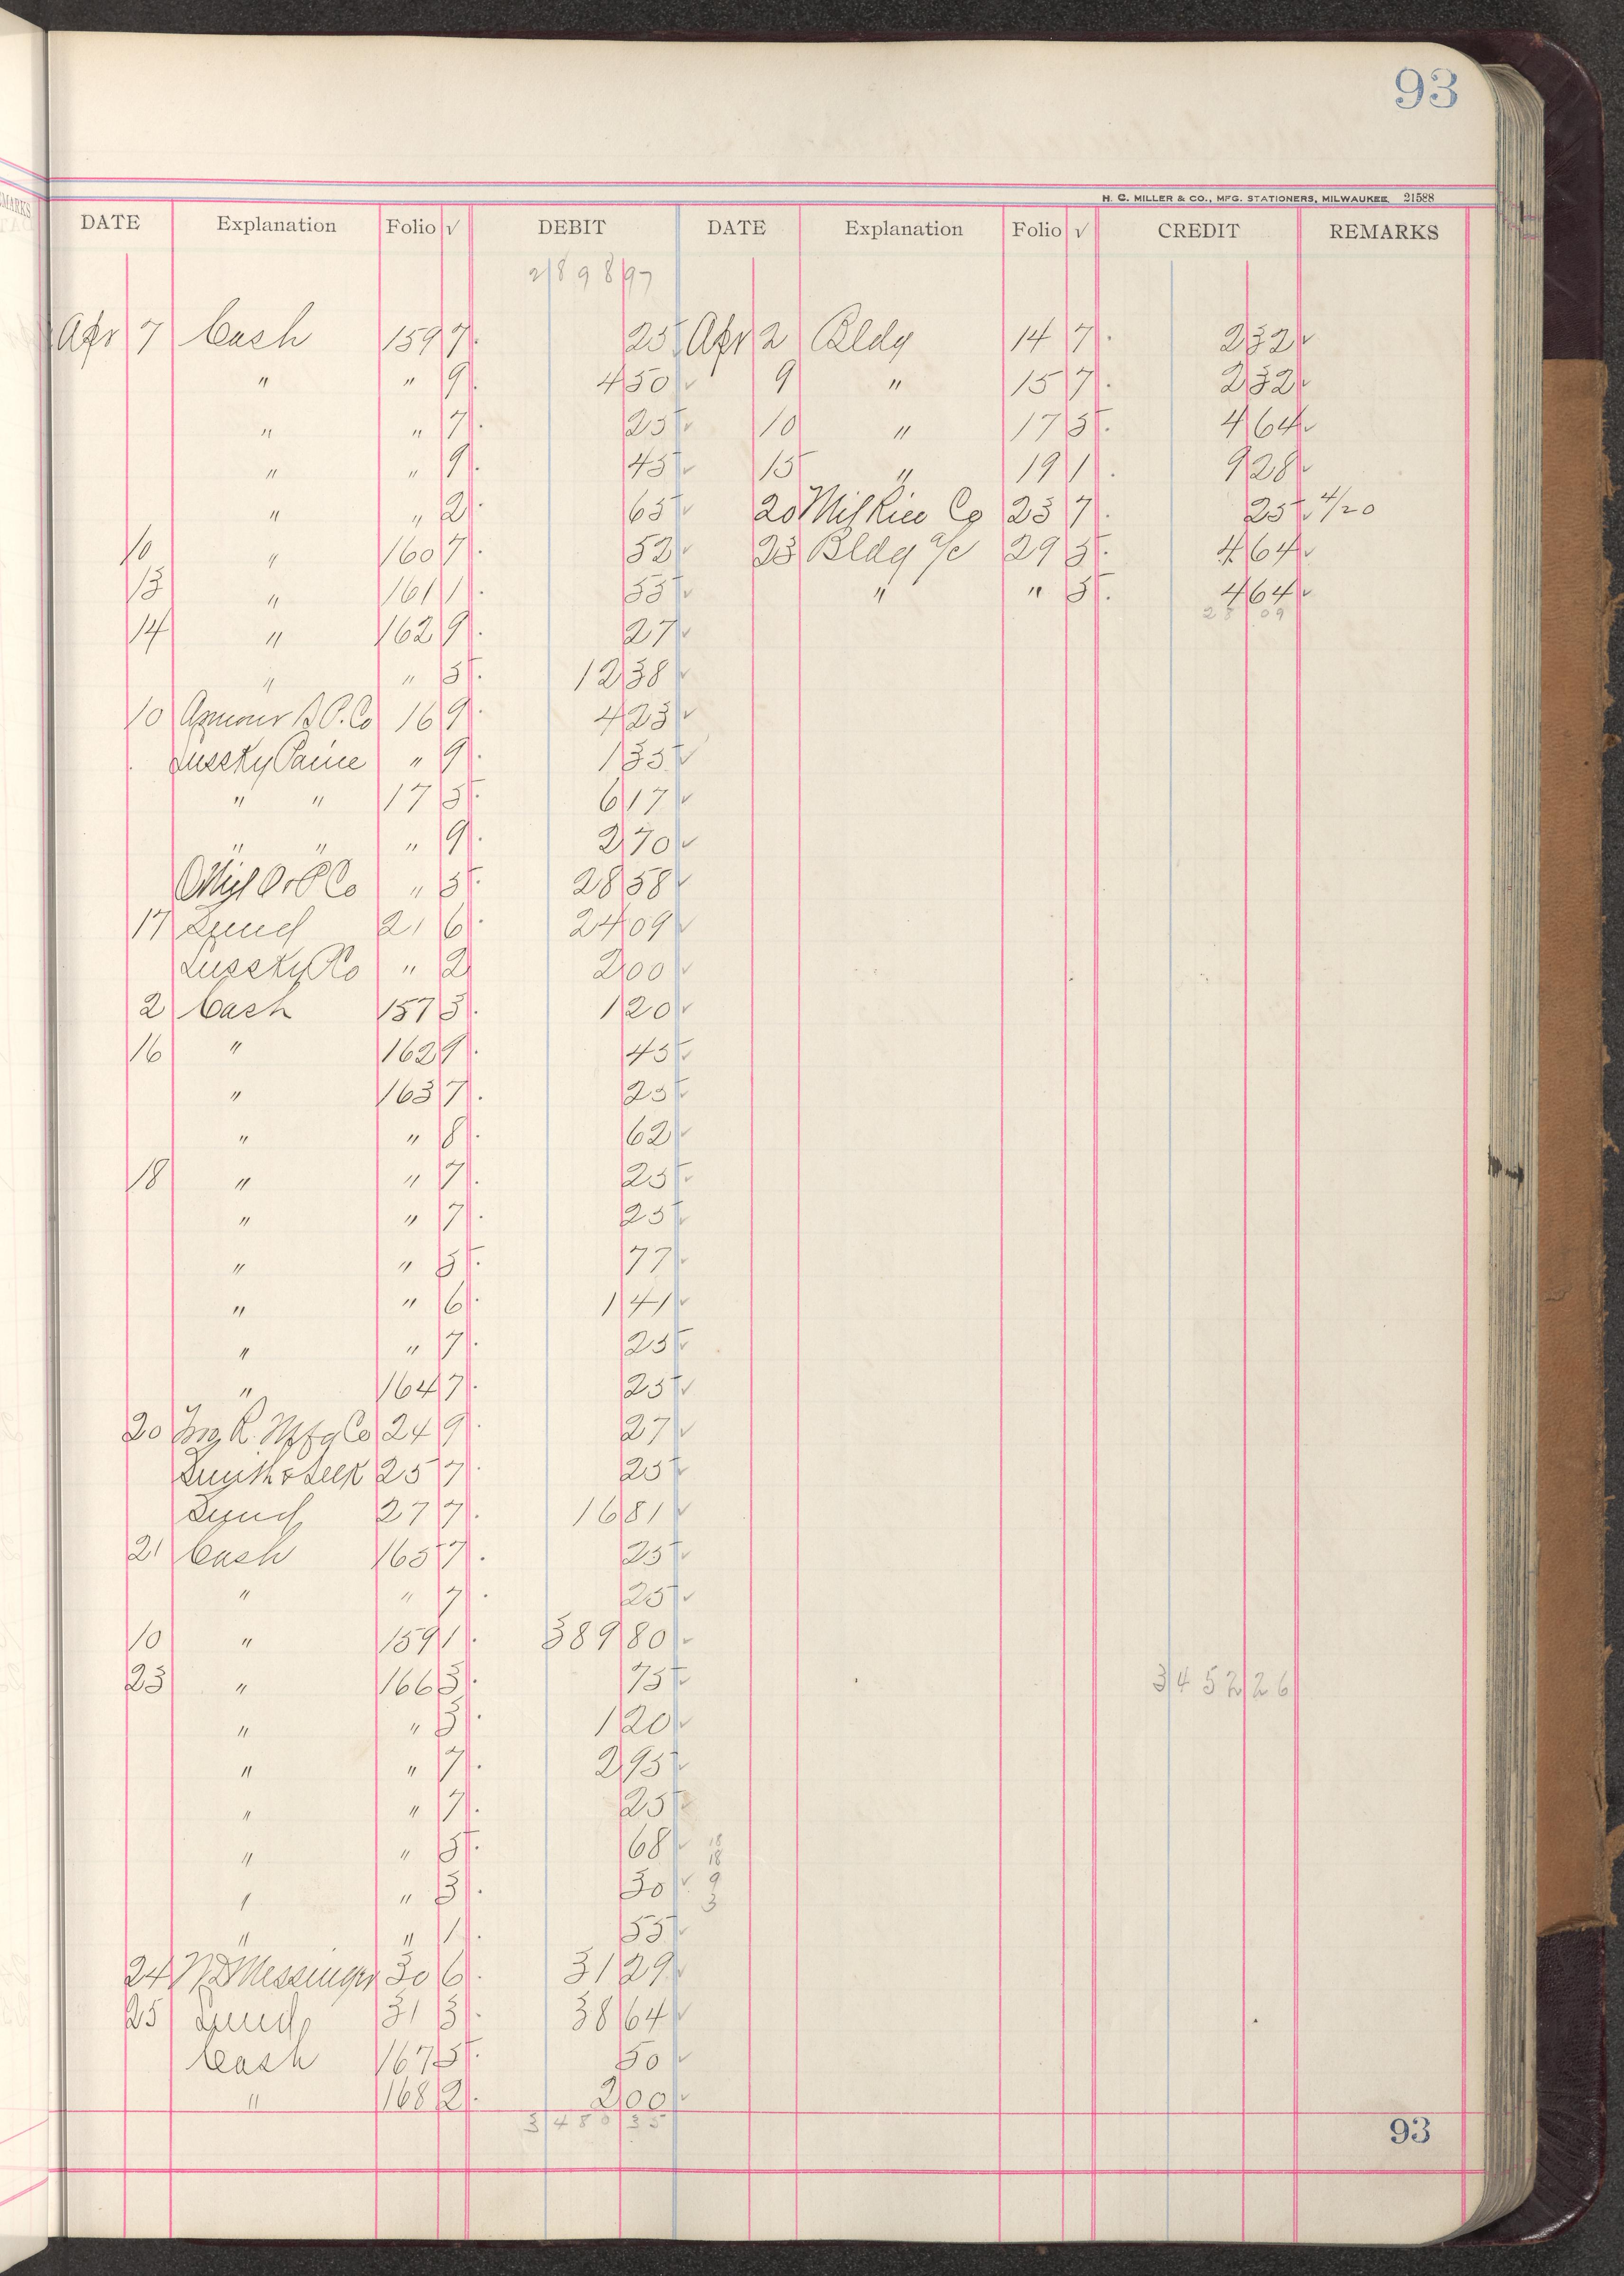 93
H. C. MILLER & CO., MFG. STATIONERS, MILWAUKEE. 21588
EMARKS
DATE Explanation Folio √ DEBIT DATE Explanation Folio √ CREDIT REMARKS
2898 97
Apr 7 Cash 159 7. 25 Apr 2 Bldg 14 7. 2 32 ✓
" " 9. 4 50 ✓ 9 " 15 7. 2 32 ✓
" " 7. 25 ✓ 10 " 17 5. 4 64 ✓
" " 9. 45 ✓ 15 " 19 1. 9 28 ✓
" " 2. 65 ✓ 20 Mil Rice Co 23 7. 25 ✓ 4/20
10 " 160 7. 52 ✓ 23 Bldg a/c 29 5. 4 64 ✓
13 " 161 1. 55 ✓ " " 5. 4 64 ✓
14 " 162 9. 27 ✓ 28 09
" " 5. 12 38 ✓
10 Armour & P. Co 16 9. 4 23 ✓
Lussky Paine " 9. 1 35 ✓
" " 17 5. 6 17 ✓
" " " 9. 2 70 ✓
Co " 5. 28 58 ✓
17 21 6. 24 09 ✓
Lussky Co " 2 2 00 ✓
2 Cash 157 3. 1 20 ✓
16 " 162 9. 45 ✓
" 163 7. 25 ✓
" " 8. 62 ✓
18 " " 7. 25 ✓
" " 7. 25 ✓
" " 5. 77 ✓
" " 6. 1 41 ✓
" " 7. 25 ✓
" 164 7. 25 ✓
20 R. Mfg Co 24 9. 27 ✓
Smith & 25 7. 25 ✓
27 7. 16 81 ✓
21 Cash 165 7. 25 ✓
" " 7. 25 ✓
10 " 159 1. 389 80 ✓
23 " 166 3. 75 ✓ 3452 26
" " 3. 1 20 ✓
" " 7. 2 95 ✓
" " 7. 25 ✓
" " 5. 68 ✓ 18
18
" " 3. 30 ✓ 9
3
" " 1. 55 ✓
24 Messinger 30 6. 31 29 ✓
25 31 3. 38 64 ✓
Cash 167 5. 50 ✓
" 168 2. 2 00 ✓
3480 35
93